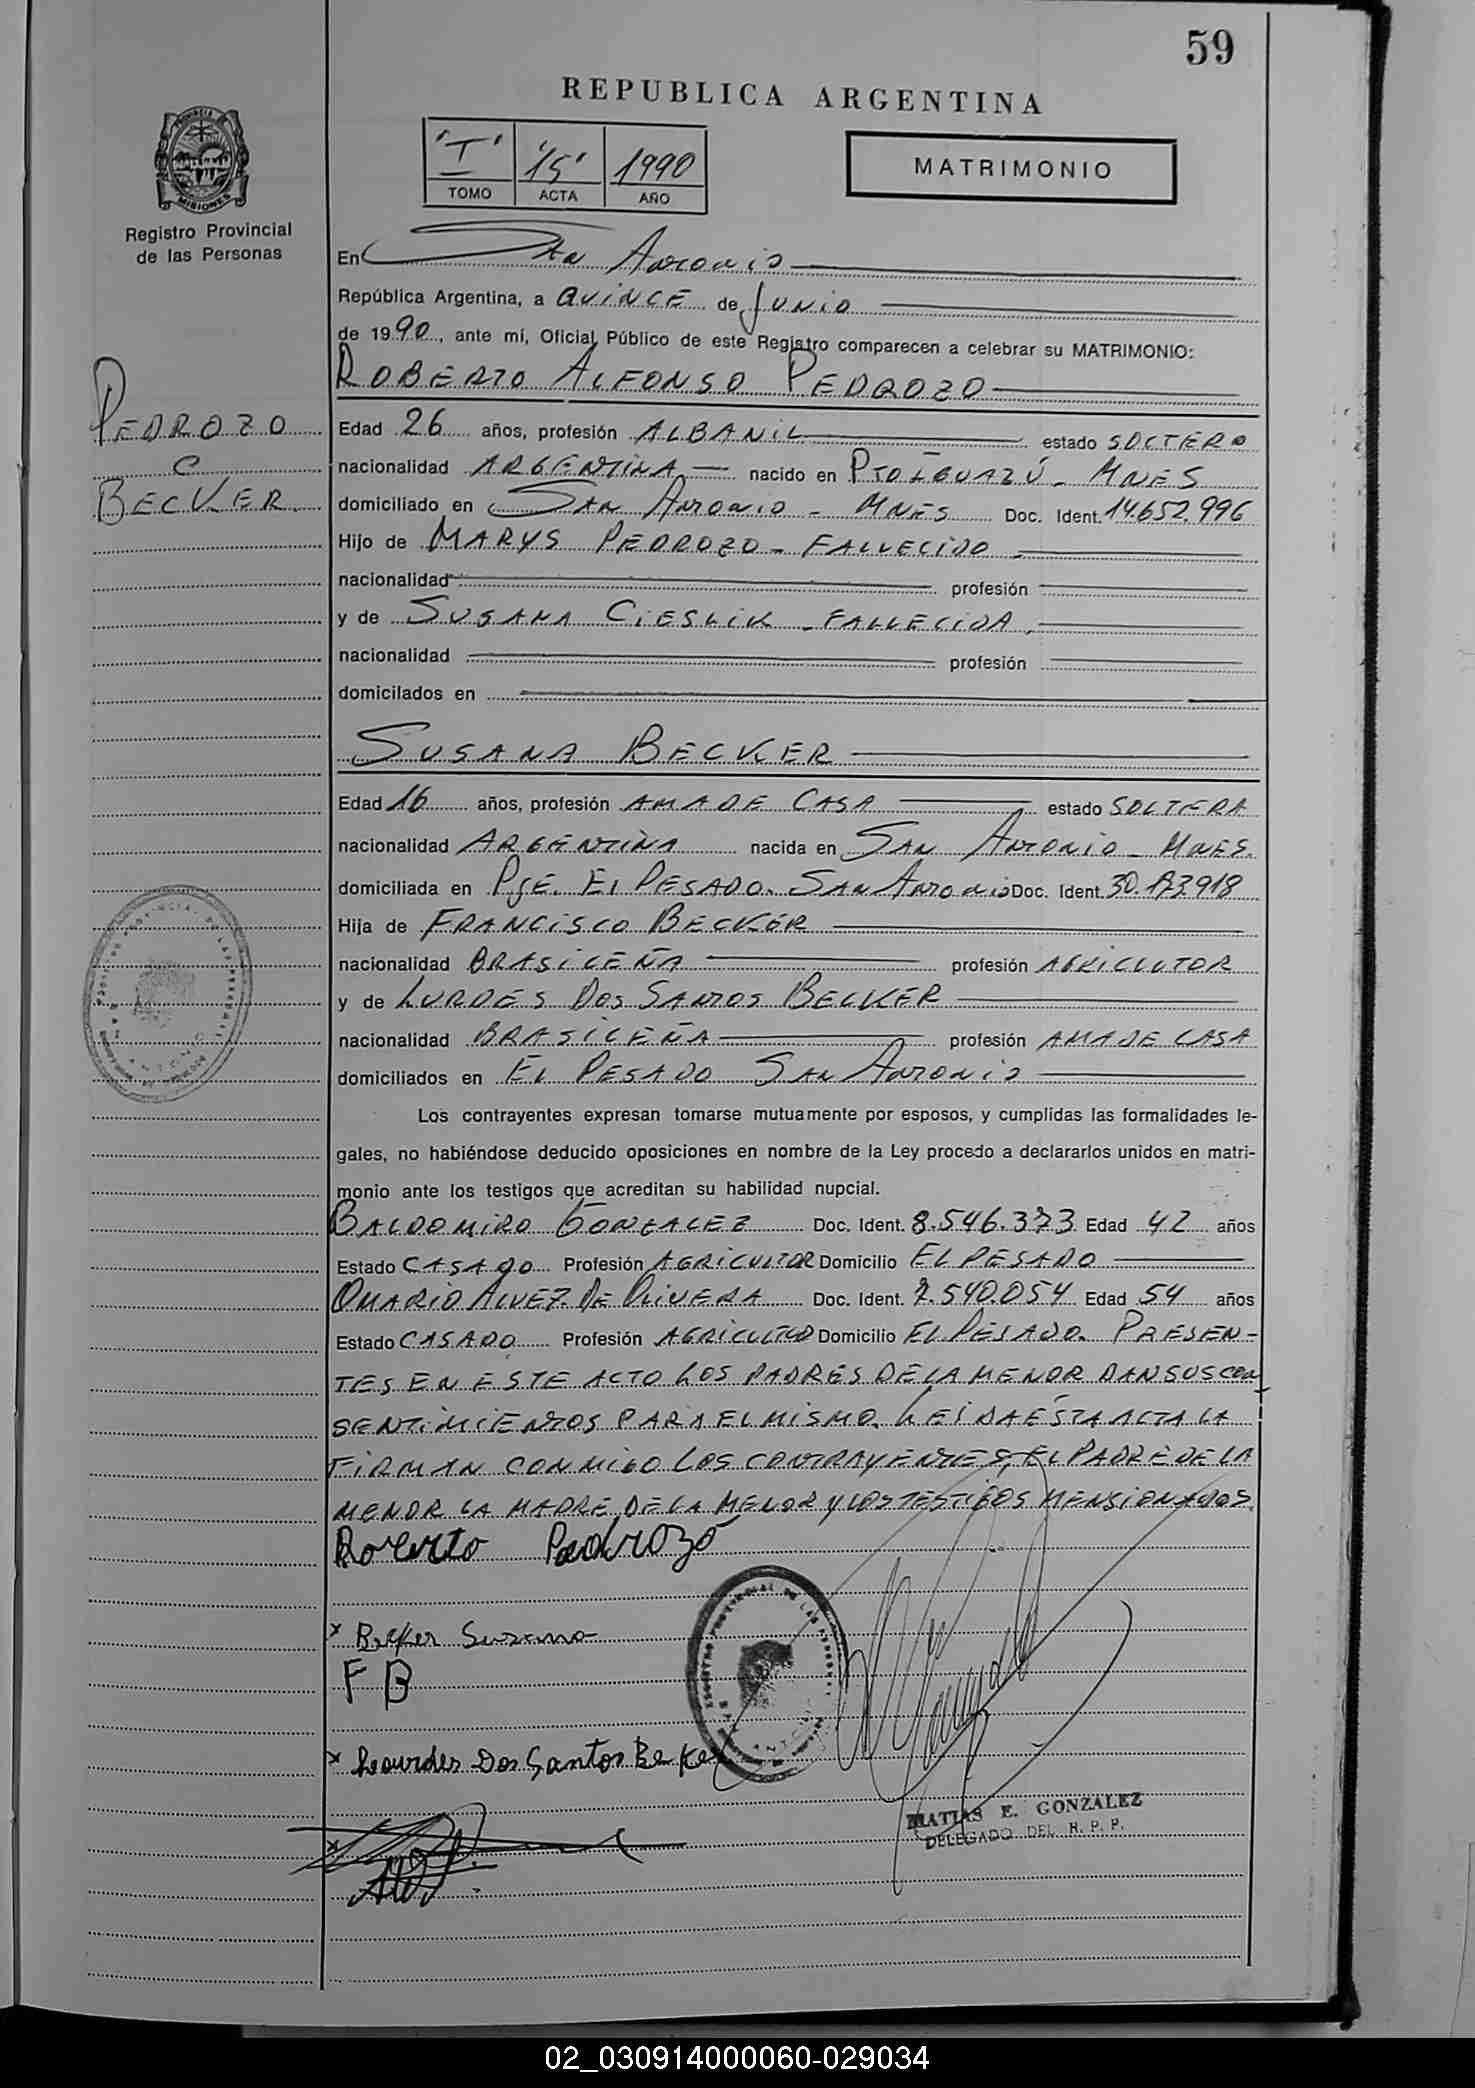 59
REPUBLICA ARGENTINA
'I' '15' 1990
TOMO ACTA AÑO
MATRIMONIO
PROVINCIA DE
MISIONES
Registro Provincial
de las Personas
En San Antonio
República Argentina, a QUINCE de Junio
de 1990, ante mí, Oficial Público de este Registro comparecen a celebrar su MATRIMONIO:
ROBERTO ALFONSO PEDROZO
PEDROZO
C
BECKER
Edad 26 años, profesión ALBANIL estado SOLTERO
nacionalidad ARGENTINA nacido en PTO IGUAZÚ - MNES
domiciliado en SAN ANTONIO - MNES Doc. Ident. 14.652.996
Hijo de MARYS PEDROZO - FALLECIDO
nacionalidad profesión
y de SUSANA CIESLIK - FALLECIDA
nacionalidad profesión
domicilados en
SUSANA BECKER
Edad 16 años, profesión AMA DE CASA estado SOLTERA
nacionalidad ARGENTINA nacida en SAN ANTONIO - MNES.
domiciliada en PJE. EL PESADO. SAN ANTONIO Doc. Ident. 30.173.918
Hija de FRANCISCO BECKER
nacionalidad BRASILEÑA profesión AGRICULTOR
y de LURDES DOS SANTOS BECKER
nacionalidad BRASILEÑA profesión AMA DE CASA
domiciliados en EL PESADO SAN ANTONIO
Los contrayentes expresan tomarse mutuamente por esposos, y cumplidas las formalidades le-
gales, no habiéndose deducido oposiciones en nombre de la Ley procedo a declararlos unidos en matri-
monio ante los testigos que acreditan su habilidad nupcial.
BALDOMIRO GONZALEZ Doc. Ident. 8.546.373 Edad 42 años
Estado CASADO Profesión AGRICULTOR Domicilio EL PESADO
OMARIO ALVEZ DE OLIVERA Doc. Ident. 7.540.054 Edad 54 años
Estado CASADO Profesión AGRICULTOR Domicilio EL PESADO. PRESEN-
TES EN ESTE ACTO LOS PADRES DE LA MENOR DAN SUS CON-
SENTIMIENTOS PARA EL MISMO. LEIDA ÉSTA ACTA LA
FIRMAN CONMIGO LOS CONTRAYENTES, EL PADRE DE LA
MENOR LA MADRE DE LA MENOR Y LOS TESTIGOS MENSIONADOS.
Roberto Pedrozo
x Beker Susana
F B
x Lourdes Dos Santos Beker
MATIAS E. GONZALEZ
DELEGADO DEL R. P. P.
02_030914000060-029034